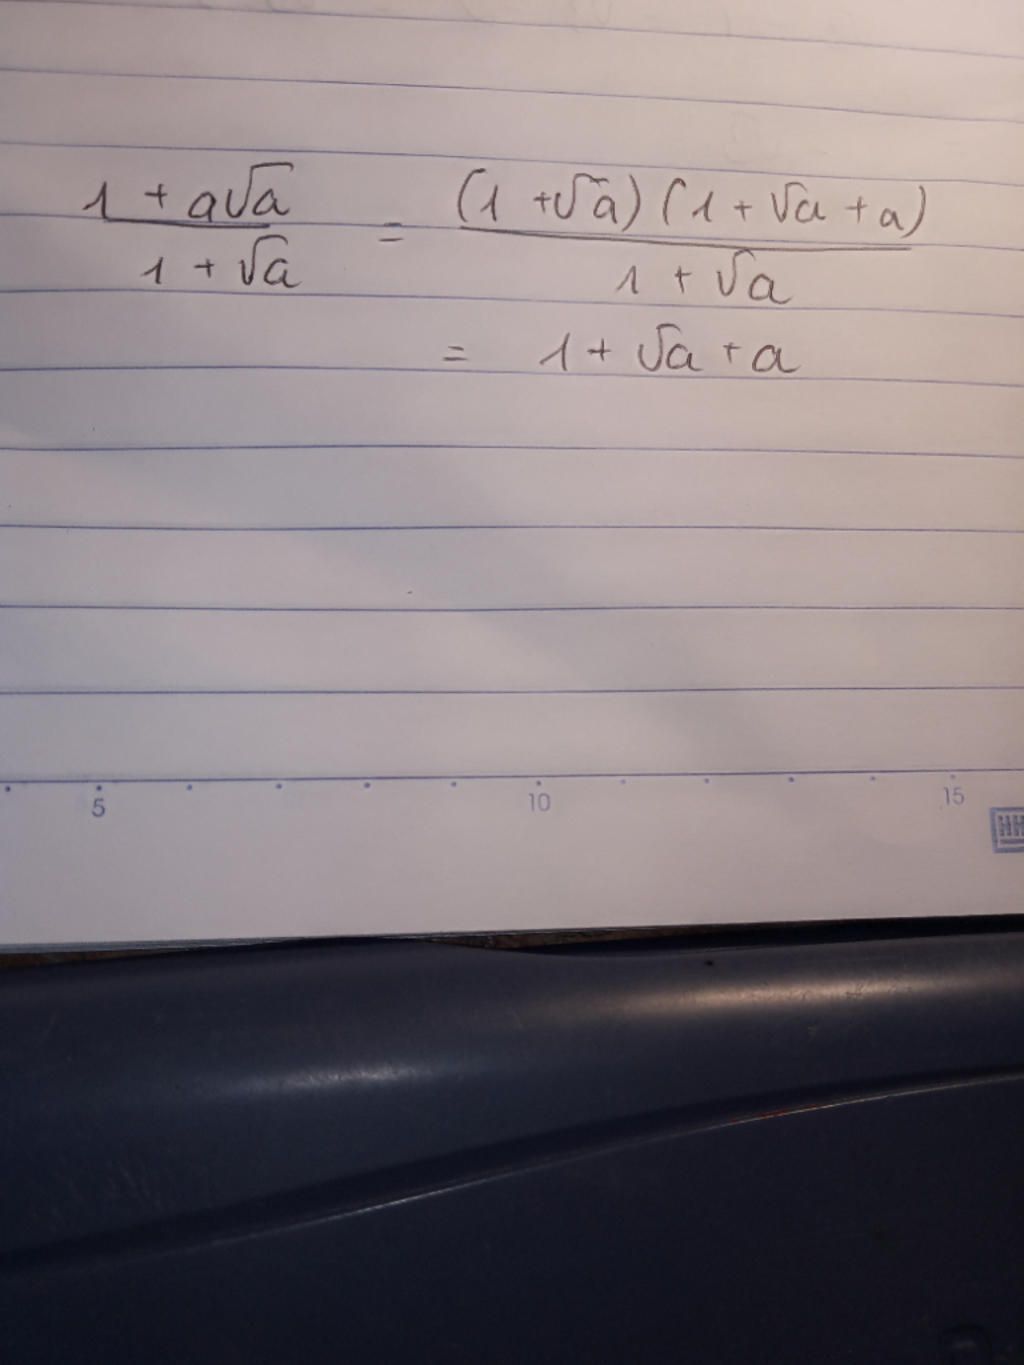 (1 + a√a)/(1 + √a) = ((1 + √a)(1 + √a + a))/(1 + √a)
= 1 + √a + a
5 10 15